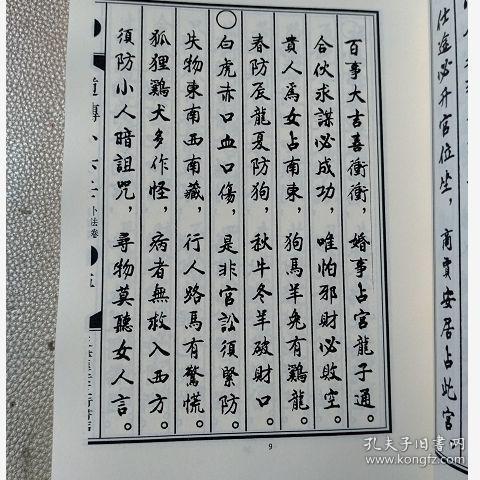 仕途必升官位坐，商賈安居占此宮。
百事大吉喜衝衝，婚事占宮龍子通。
合伙求謀必成功，唯怕邪財必敗空。
貴人爲女占南東，狗馬羊兔有鷄龍。
春防辰龍夏防狗，秋牛冬羊破財口。
白虎赤口血口傷，是非官訟須緊防。
失物東南西南藏，行人路馬有驚慌。
狐狸鷄犬多作怪，病者無救入西方。
須防小人暗詛咒，尋物莫聽女人言。
卜法卷
五
9
孔夫子旧书网
www.kongfz.com